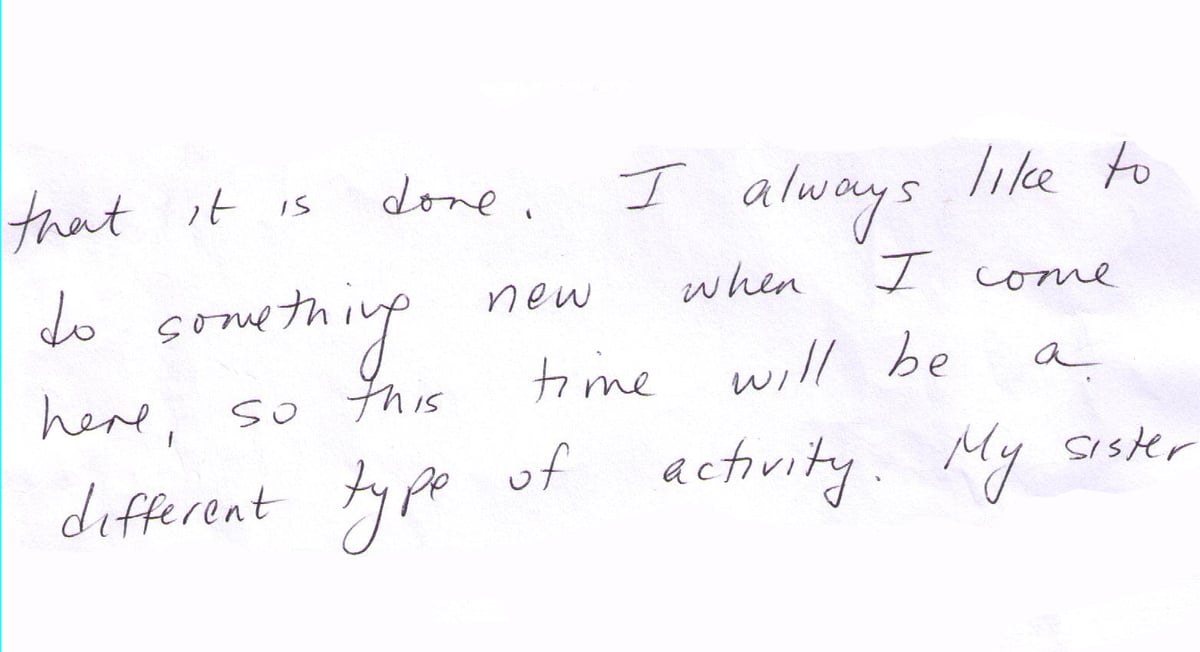 that it is done. I always like to
do something new when I come
here, so this time will be a
different type of activity. My sister